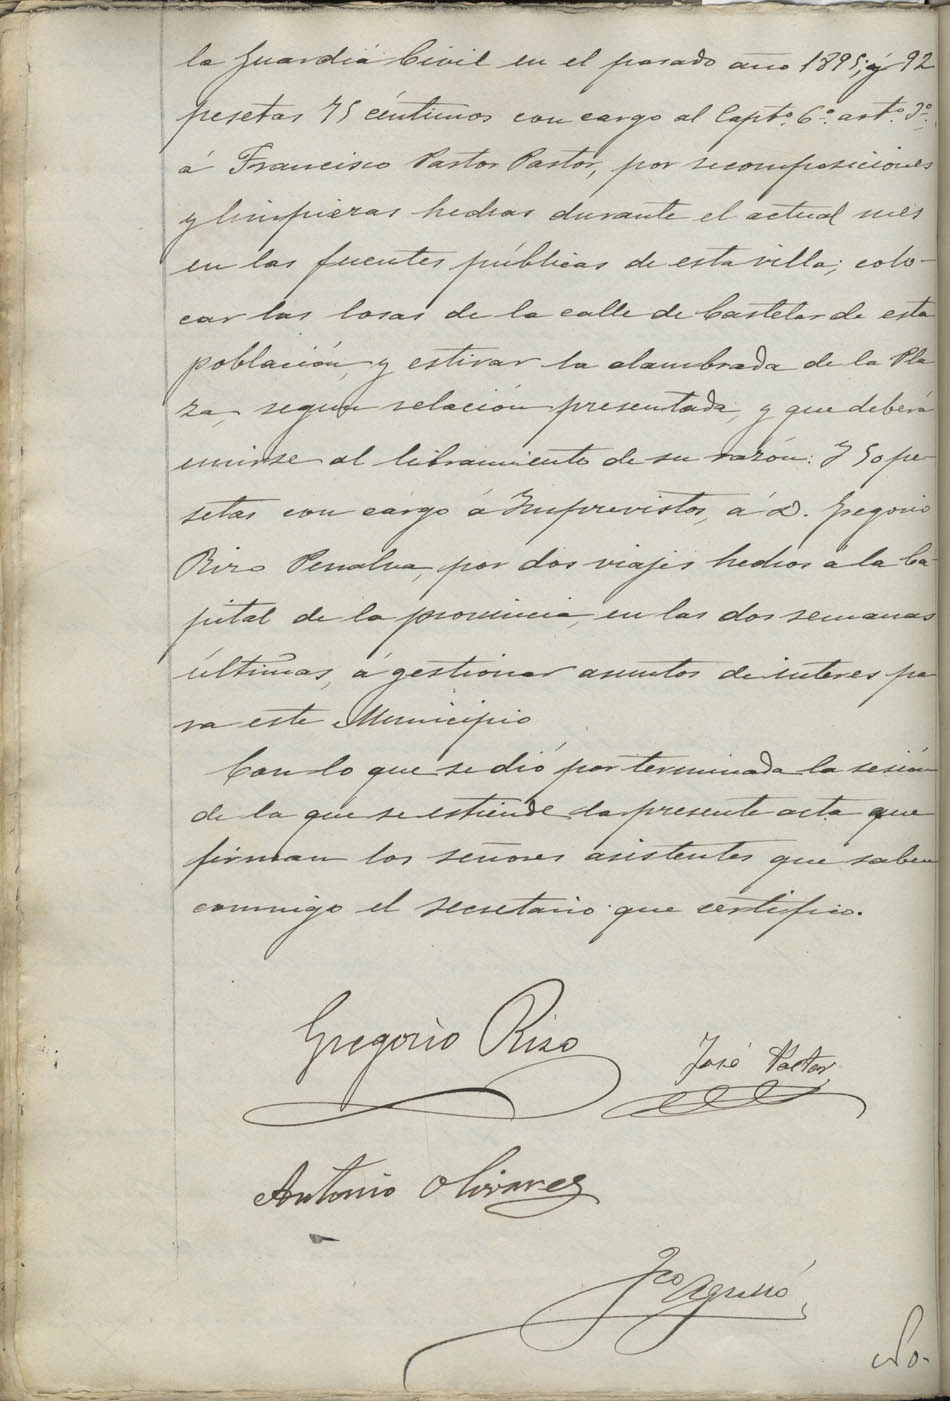 la Guardia Civil en el pasado año 1895; y 92
pesetas 75 céntimos con cargo al Capto. 6º. arto. 3º.
á Francisco Pastor Pastor, por recomposiciones
y limpiezas hechas durante el actual mes
en las fuentes públicas de esta villa; colo-
car las losas de la calle de Castelar de esta
población, y estirar la alambrada de la Pla
za, segun relación presentada, y que deberá
unirse al libramiento de su razón: Y 50 pe-
setas con cargo á Imprevistos, á D. Gregorio
Rizo Penalva, por dos viajes hechos á la Ca-
pital de la provincia, en las dos semanas
últimas, á gestionar asuntos de interes pa
ra este Municipio
Con lo que se dió por terminada la sesión
de la que se estiende la presente acta que
firman los señores asistentes que saben
conmigo el secretario que certifico.
Gregorio Rizo
José Pastor
Antonio Olivares
Fco Aguiló